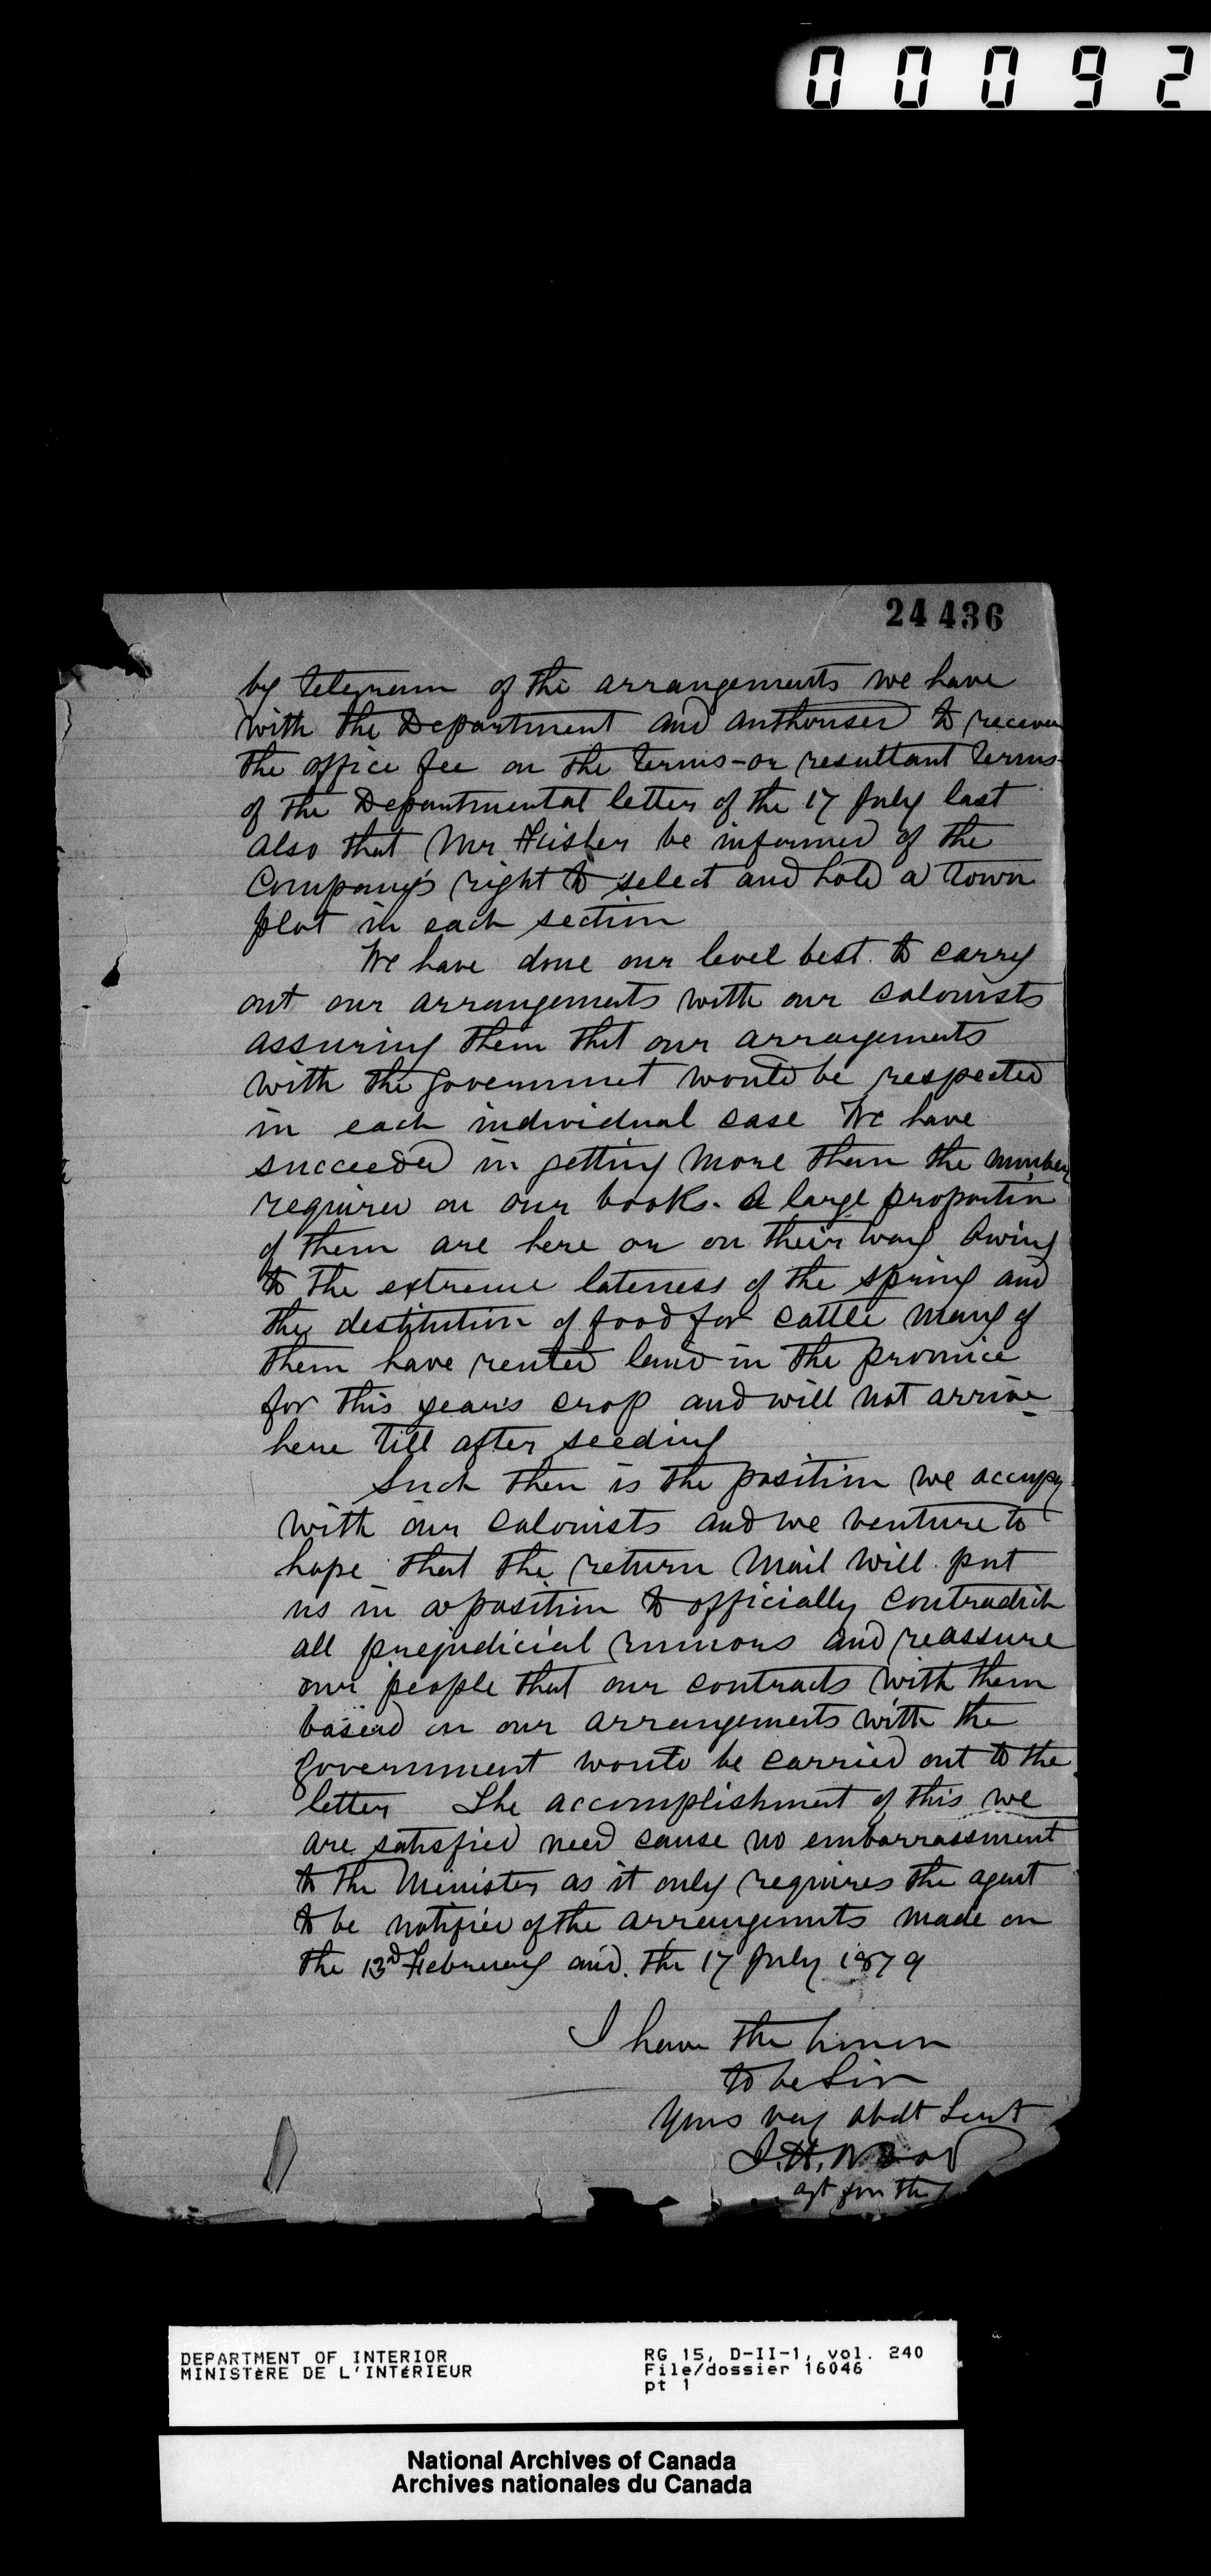 00092
24436
by telegram of the arrangements we have
with the Department and authorised to receive
the office fee on the terms - or resultant terms -
of the Departmental letter of the 17 July last
Also that Mr Fisher be informed of the
Company's right to select and hold a town
plot in each section
We have done our level best to carry
out our arrangements with our colonists
assuring them that our arrangements
with the Government would be respected
in each individual case We have
succeeded in getting more than the number
required on our books. A large proportion
of them are here or on their way Owing
to the extreme lateness of the spring and
the destitution of food for cattle many of
them have rented land in the province
for this year's crop and will not arrive
here till after seeding
Such then is the position we occupy
with our colonists and we venture to
hope that the return mail will put
us in a position to officially contradict
all prejudicial rumors and reassure
our people that our contracts with them
based on our arrangements with the
Government would be carried out to the
letter The accomplishment of this we
are satisfied need cause no embarrassment
to the Minister as it only requires the agent
to be notified of the arrangements made on
the 13th February and the 17 July 1879
I have the honor
to be Sir
Yours very obdt Servt
J. H. Wood
agt for the
DEPARTMENT OF INTERIOR
MINISTÈRE DE L'INTÉRIEUR
RG 15, D-II-1, vol. 240
File/dossier 16046
pt 1
National Archives of Canada
Archives nationales du Canada